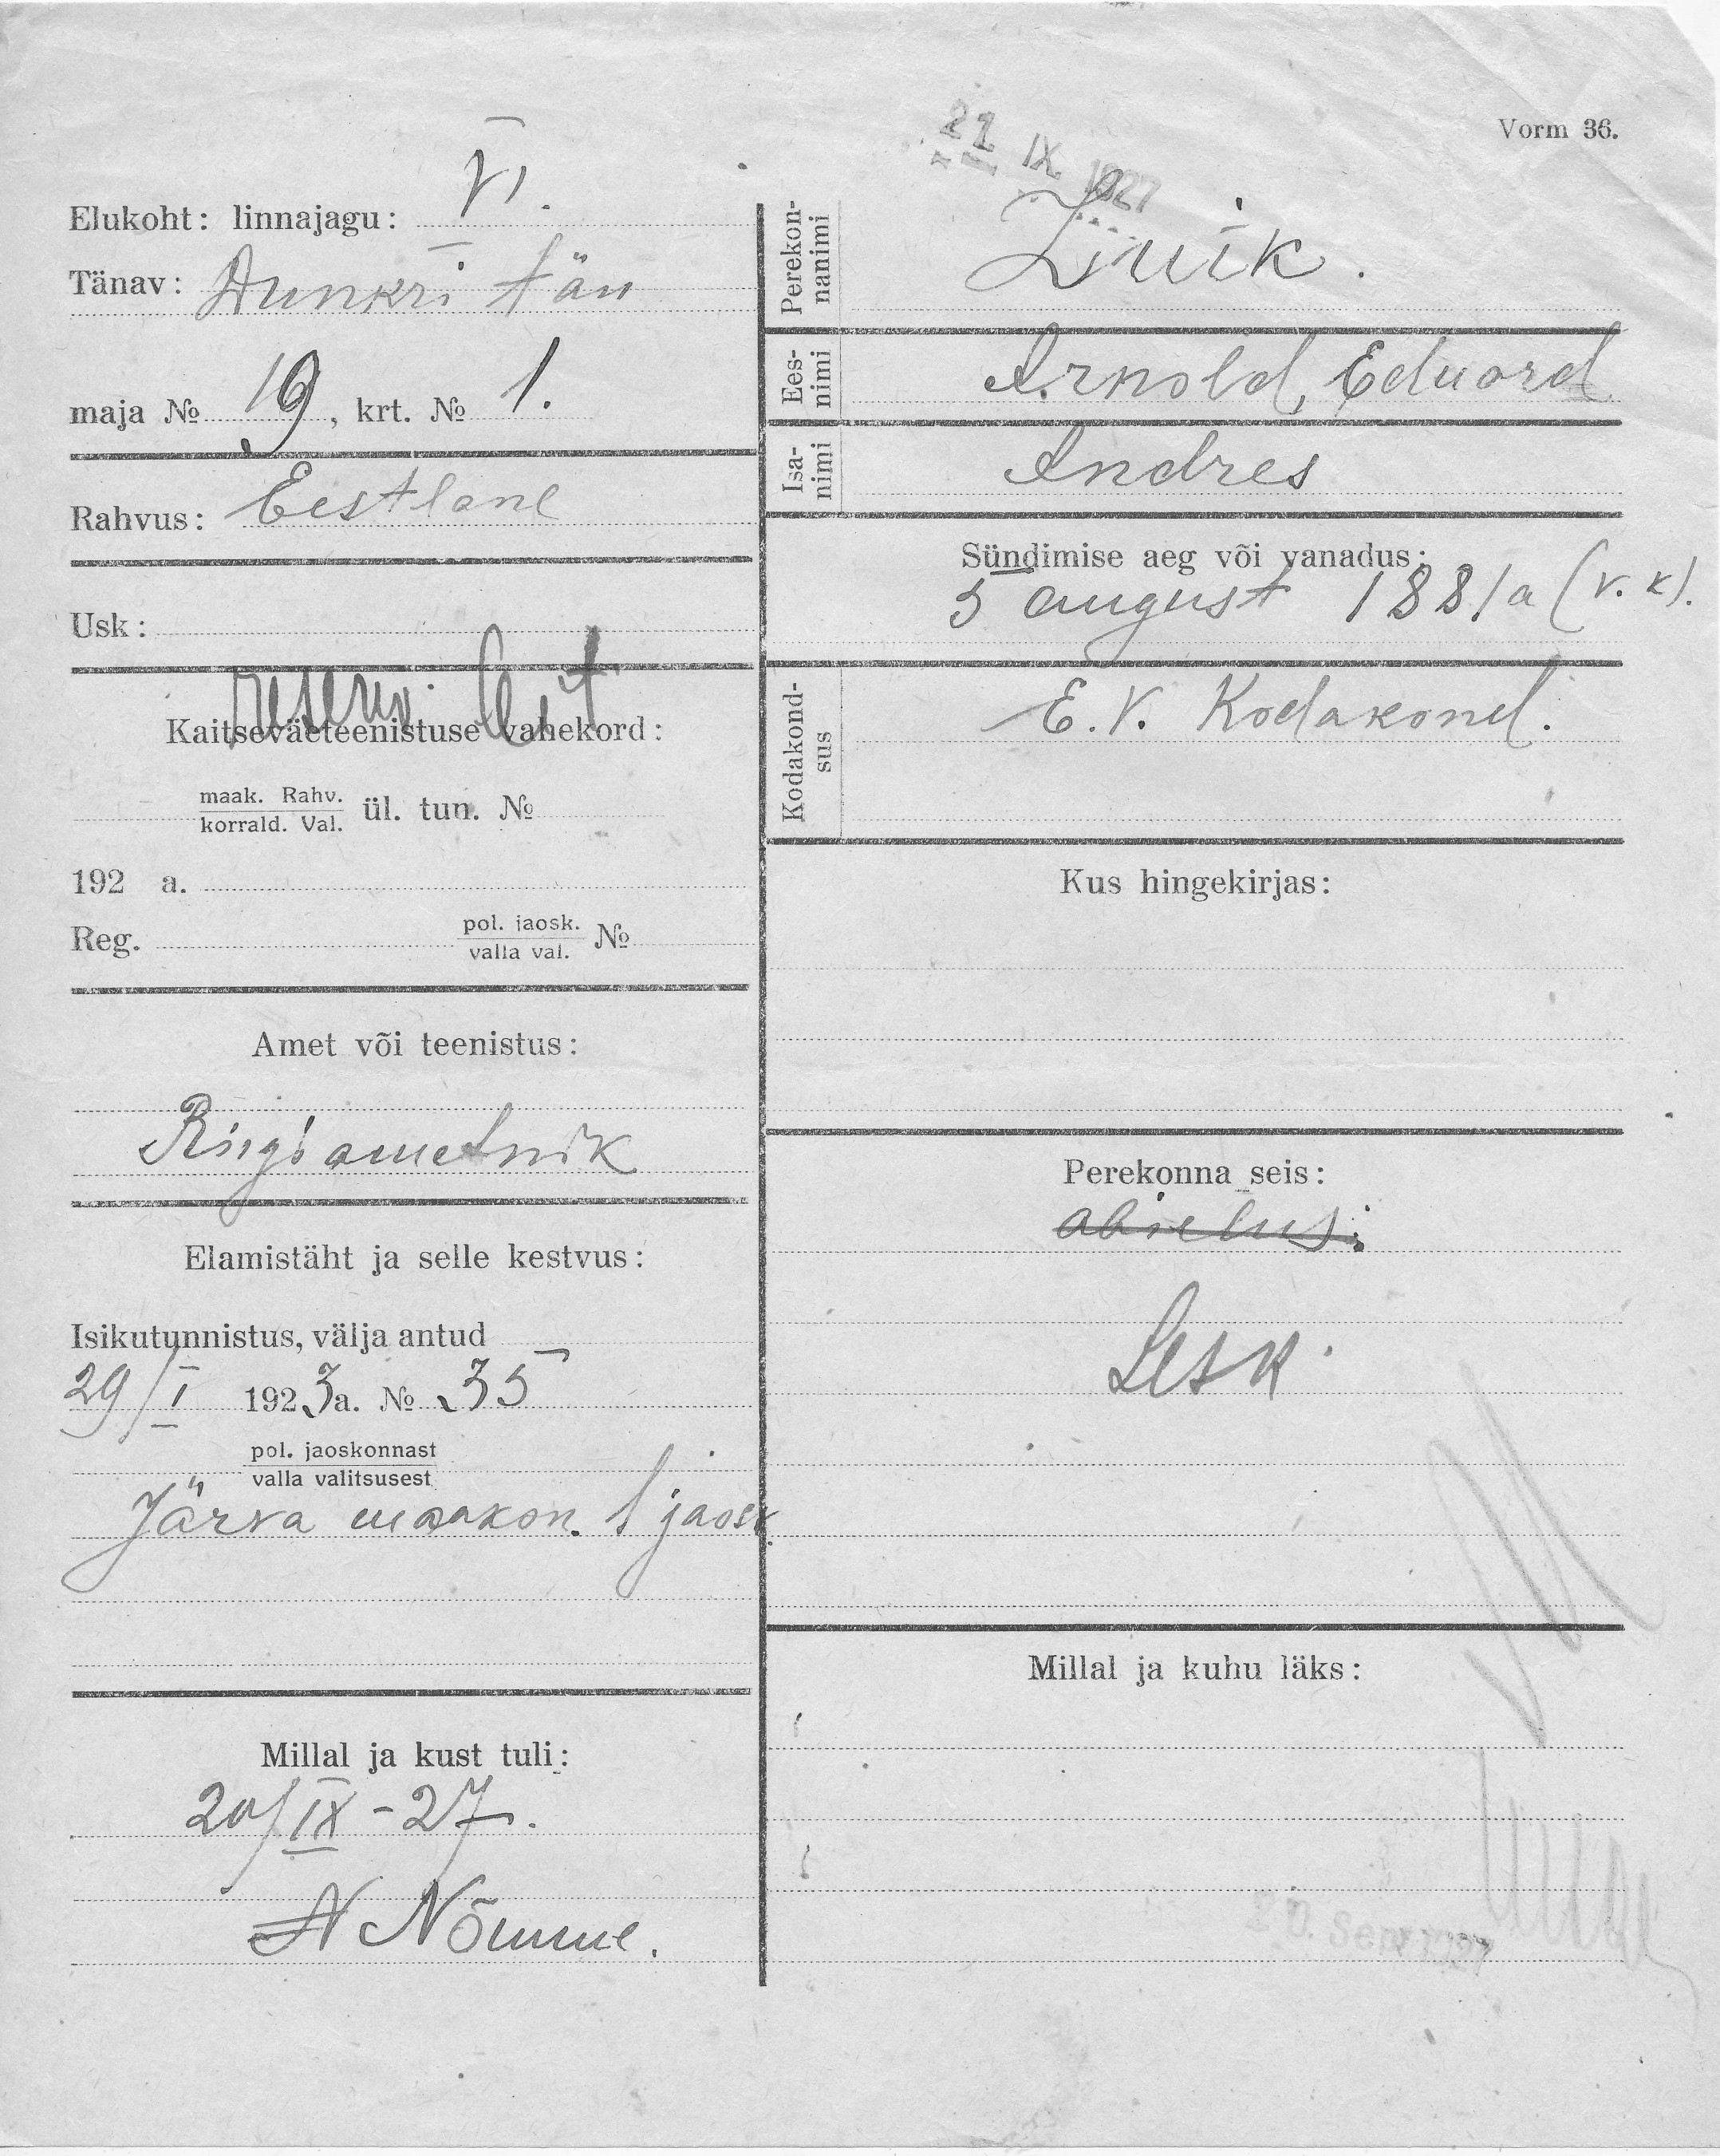 Vorm 36.
21 IX 1927
Elukoht: linnajagu: VI.
Tänav: Aunkri tän
maja № 19, krt. № 1.
Rahvus: Eestlane
Usk:
reserv
Kaitseväeteenistuse vahekord:
maak. Rahv.
korrald. Val. ül. tun. №
192 a.
Reg. pol. jaosk.
valla val. №
Amet või teenistus:
Ringi ametnik
Elamistäht ja selle kestvus:
Isikutunnistus, välja antud
29/I 1923a. № 35
pol. jaoskonnast
valla valitsusest
Järva maakon. 1 jaosk.
Millal ja kust tuli:
20/IX-27.
N Nõmme.
Perekon-
nanimi
Luik.
Ees-
nimi
Arnold, Eduard
Isa-
nimi
Andres
Sündimise aeg või vanadus:
5 august 1881a (v. k).
Kodakond-
sus
E.V. Kodakond.
Kus hingekirjas:
Perekonna seis:
abielus.
Lesk.
Millal ja kuhu läks: